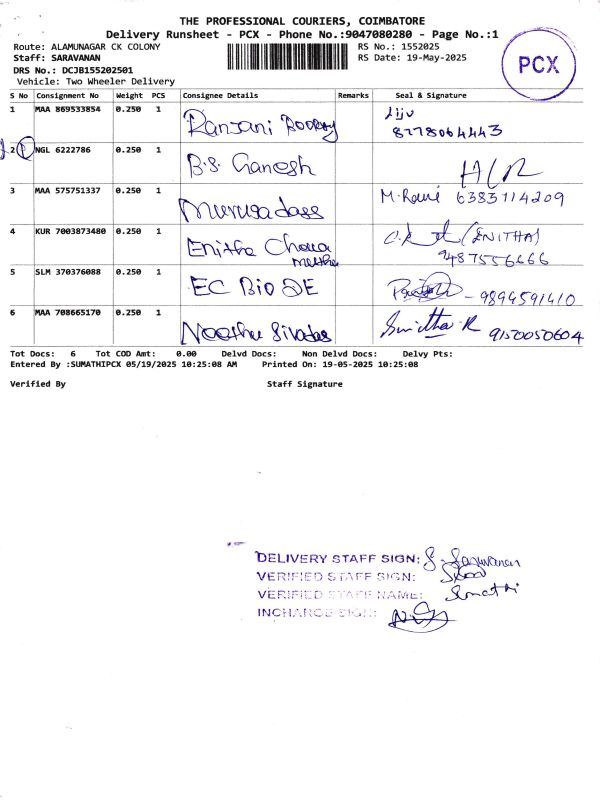 THE PROFESSIONAL COURIERS, COIMBATORE
Delivery Runsheet - PCX - Phone No.:9047080280 - Page No.:1
Route: ALAMUNAGAR CK COLONY RS No.: 1552025
Staff: SARAVANAN RS Date: 19-May-2025
PCX
DRS No.: DCJB155202501
Vehicle: Two Wheeler Delivery
S No Consignment No Weight PCS Consignee Details Remarks Seal & Signature
1 MAA 869533854 0.250 1 Ranjani Liju
8778064443
2 NGL 6222786 0.250 1 B.S. Ganesh
3 MAA 575751337 0.250 1 Murugadass M. 6383114209
4 KUR 7003873480 0.250 1 Enitha (ENITHA)
9487556666
5 SLM 370376088 0.250 1 EC Bio DE - 9894591410
6 MAA 708665170 0.250 1 Sivadas Smitha R 9150050604
Tot Docs: 6 Tot COD Amt: 0.00 Delvd Docs: Non Delvd Docs: Delvy Pts:
Entered By :SUMATHIPCX 05/19/2025 10:25:08 AM Printed On: 19-05-2025 10:25:08
Verified By Staff Signature
DELIVERY STAFF SIGN: S. Saravanan
VERIFIED STAFF SIGN:
VERIFIED STAFF NAME: Sumathi
INCHARGE SIGN: